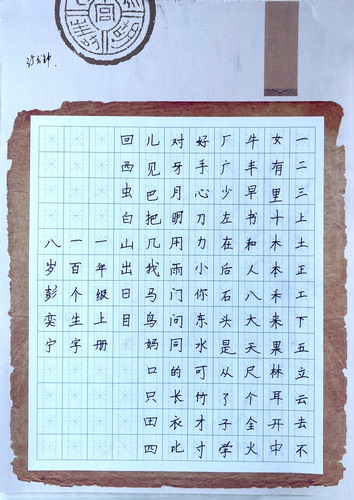 35分钟.
一二三上土正工下五立云去不
女有里十木本禾来果林耳开中
牛羊早书和人八大天尺个全火
厂广少左在后石头是从了子学
好手心刀力小你东水可竹才寸
对牙月明用雨门问同的长衣比
儿见巴把几找马鸟妈口只田四
回西虫白山出日目
一年级上册
一百个生字
八岁彭奕宁